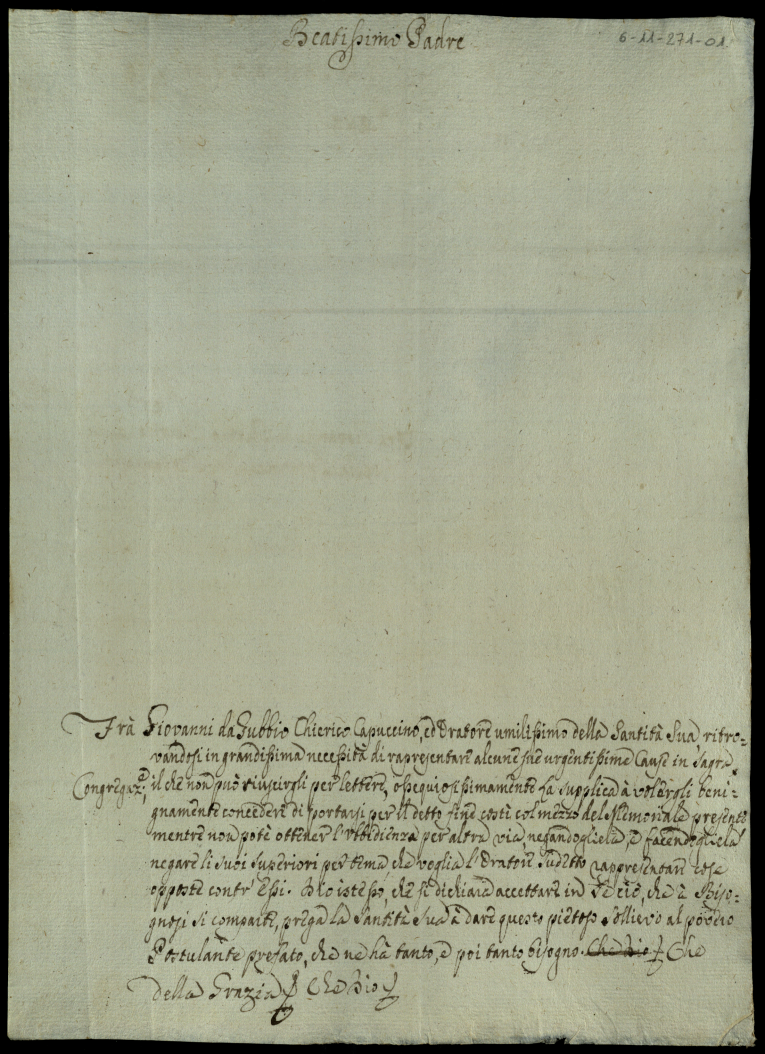 Beatissimo Padre
6-11-271-01
Frà Giovanni da Gubbio Chierico Capuccino, ed Oratore umilissimo della Santità Sua, ritro=
vandosi in grandissima necessità di rapresentare alcune sue urgentissime Cause in Sagra
Congregaz.e, il che non può riuscirgli per lettere, ossequiosissimamente La supplica à volergli beni=
gnamente concedere di portarsi per il detto fine costì col mezzo del Memoriale presente
mentre non potè ottener l'ubidienza per altra via, negandogliela, e facendogliela
negare li suoi Superiori per tema, che voglia l'Oratore sudetto rappresentare cose
opposte contr' Essi. Dio istesso, che si dichiara accettare in se ciò, che a Biso=
gnosi si comparte, prega la Santità Sua à dare questo pietoso sollievo al povero
Postulante prefato, che ne hà tanto, e poi tanto bisogno. Che Dio Che
della Grazia Che Dio